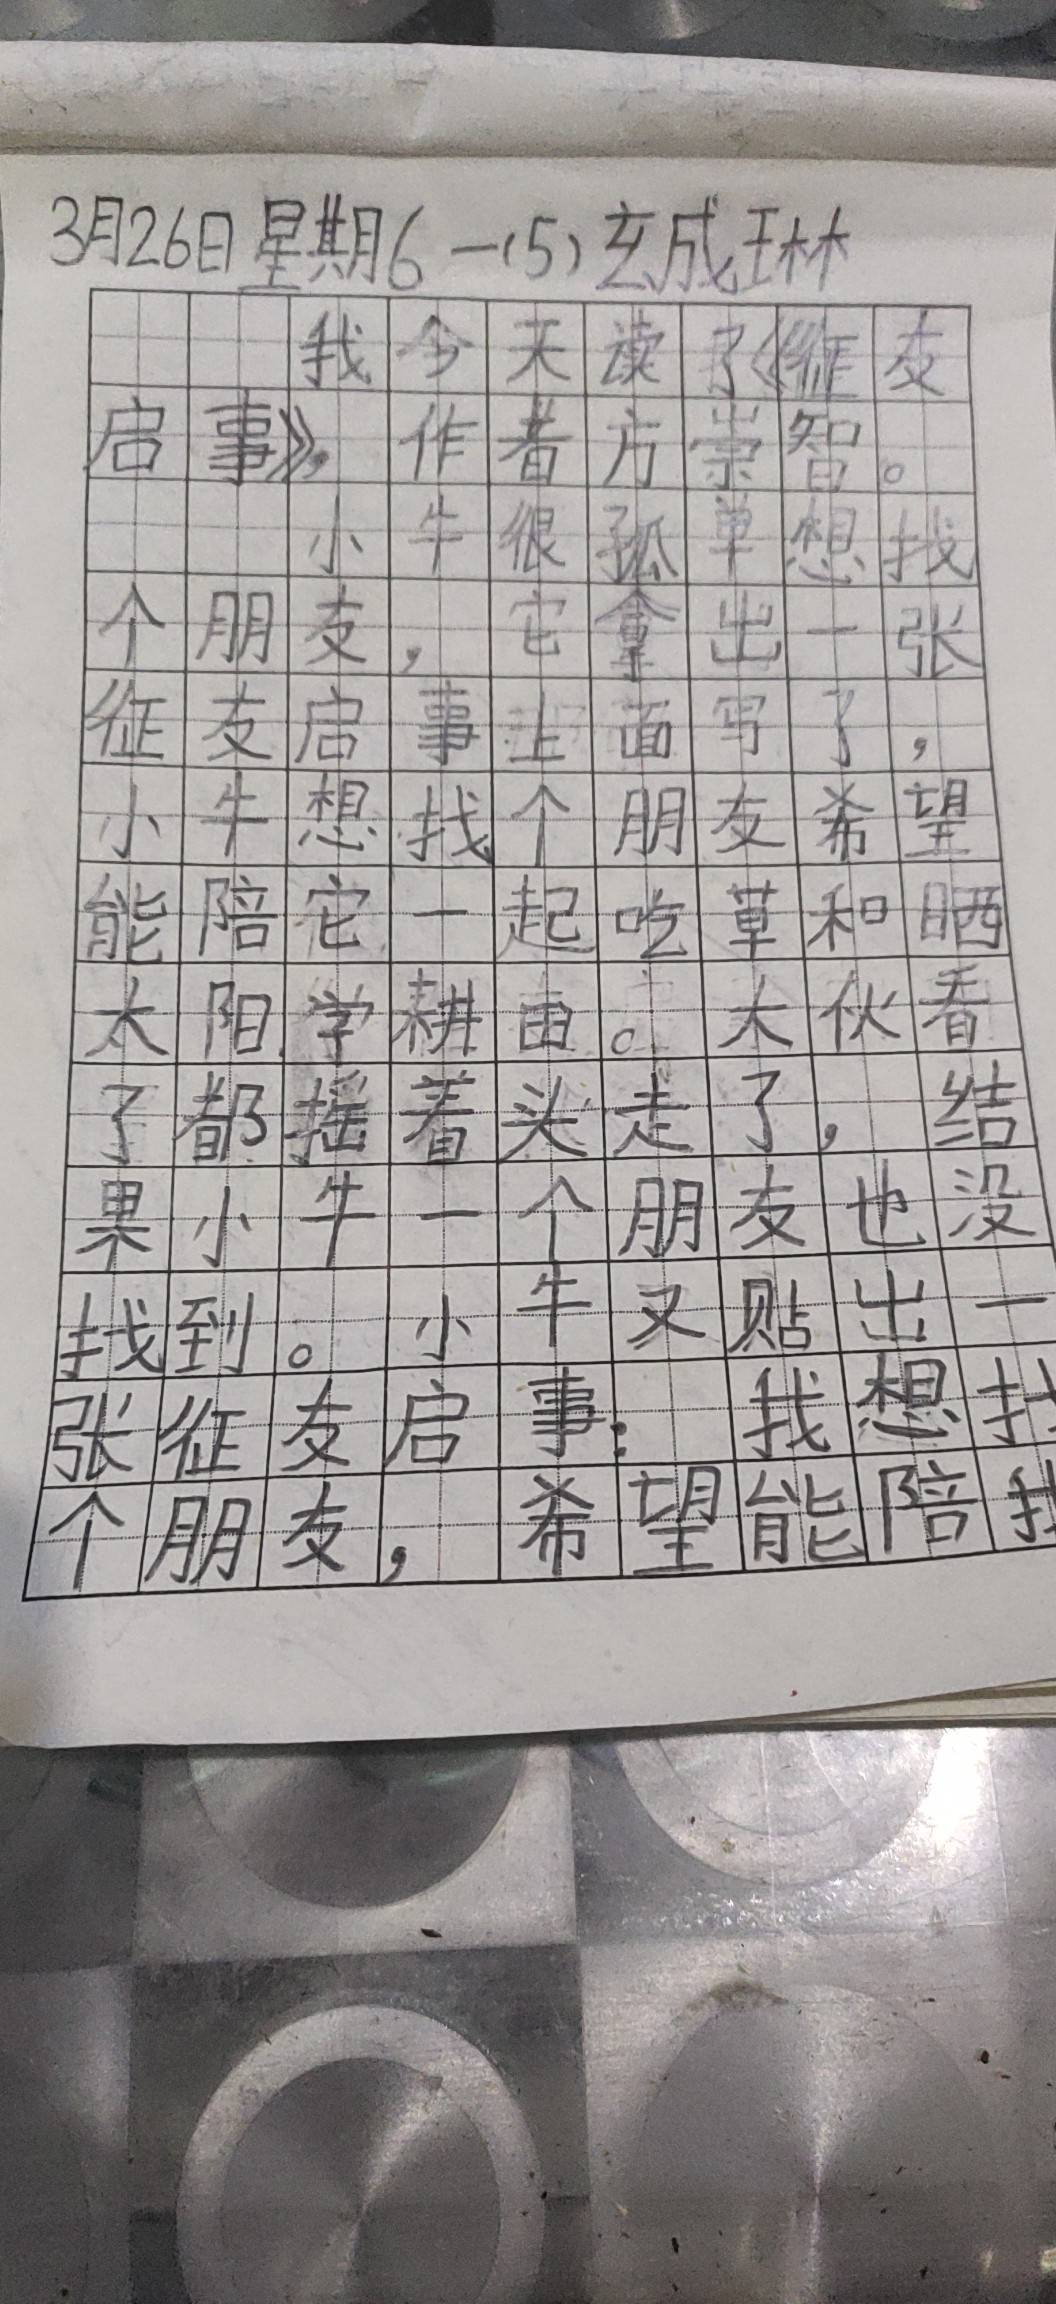 3月26日星期6 一(5)玄成琳
我今天读了《征友
启事》，作者方崇智。
小牛很孤单想找
个朋友，它拿出一张
征友启事上面写了，
小牛想找个朋友希望
能陪它一起吃草和晒
太阳学耕由。大伙看
了都摇着头走了，结
果小牛一个朋友也没
找到。小牛又贴出一
张征友启事：我想找
个朋友，希望能陪我